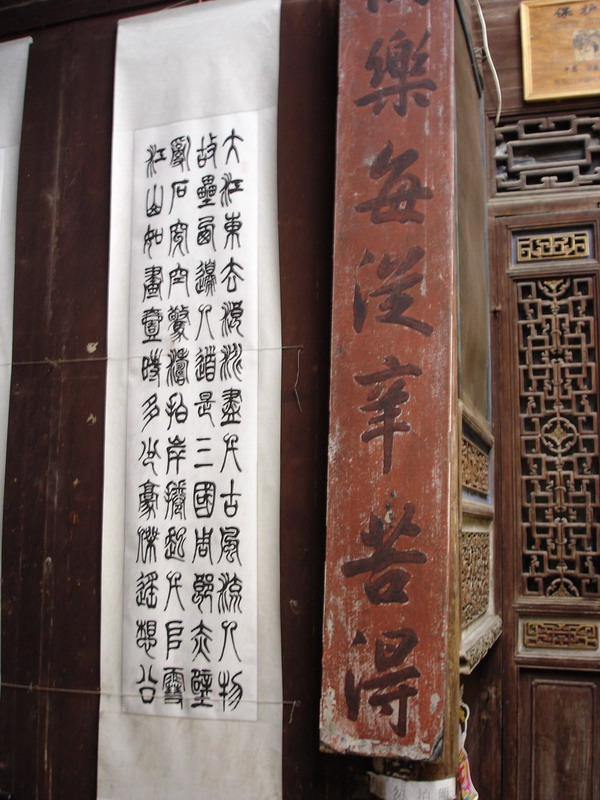 大江東去浪淘盡千古風流人物
故壘西邊人道是三國周郎赤壁
亂石穿空驚濤拍岸捲起千堆雪
江山如畫壹時多少豪傑遙想公
樂每從辛苦得
保护